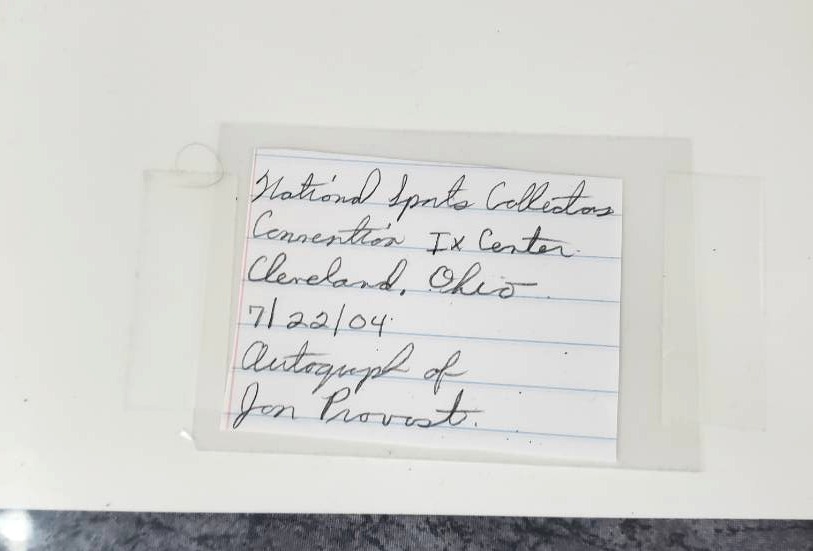 National Sports Collectors
Convention IX Center
Cleveland, Ohio
7/22/04
Autograph of
Jon Provost.